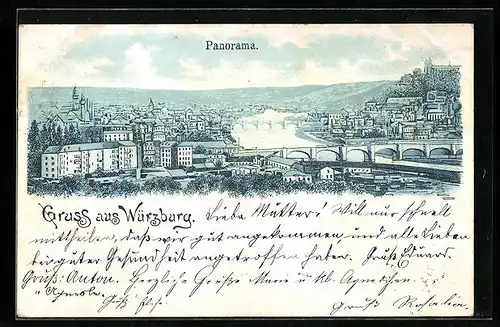 Panorama.
Gruss aus Würzburg. Liebe Mutter! Will nur schnell
mittheilen, daß wir gut angekommen und alle Lieben
bei guter Gesundheit angetroffen haben. Gruß Eduard.
Gruß Anton. Herzliche Grüße Marie u kl. Agneschen.
" Gruß
Gruß Rosalia.